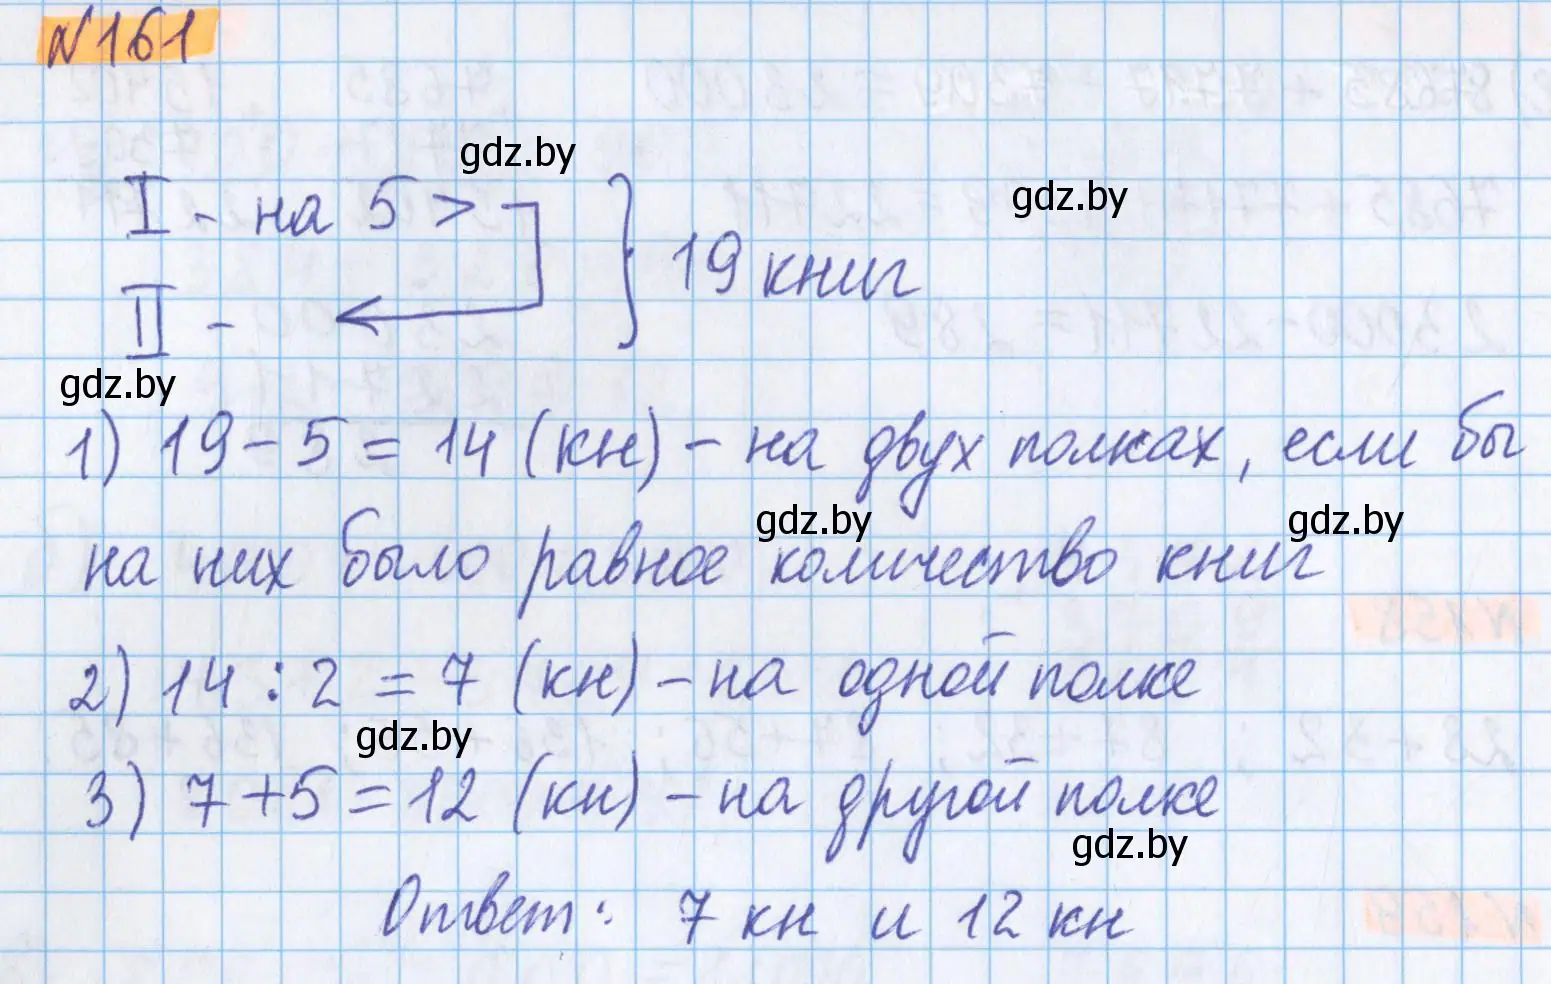 №161
gdz.by
I - на 5 >
gdz.by
19 книг
II -
gdz.by
1) 19 - 5 = 14 (кн) - на двух полках, если бы
gdz.by
gdz.by
на них было равное количество книг
2) 14 : 2 = 7 (кн) - на одной полке
gdz.by
3) 7 + 5 = 12 (кн) - на другой полке
gdz.by
Ответ: 7 кн и 12 кн